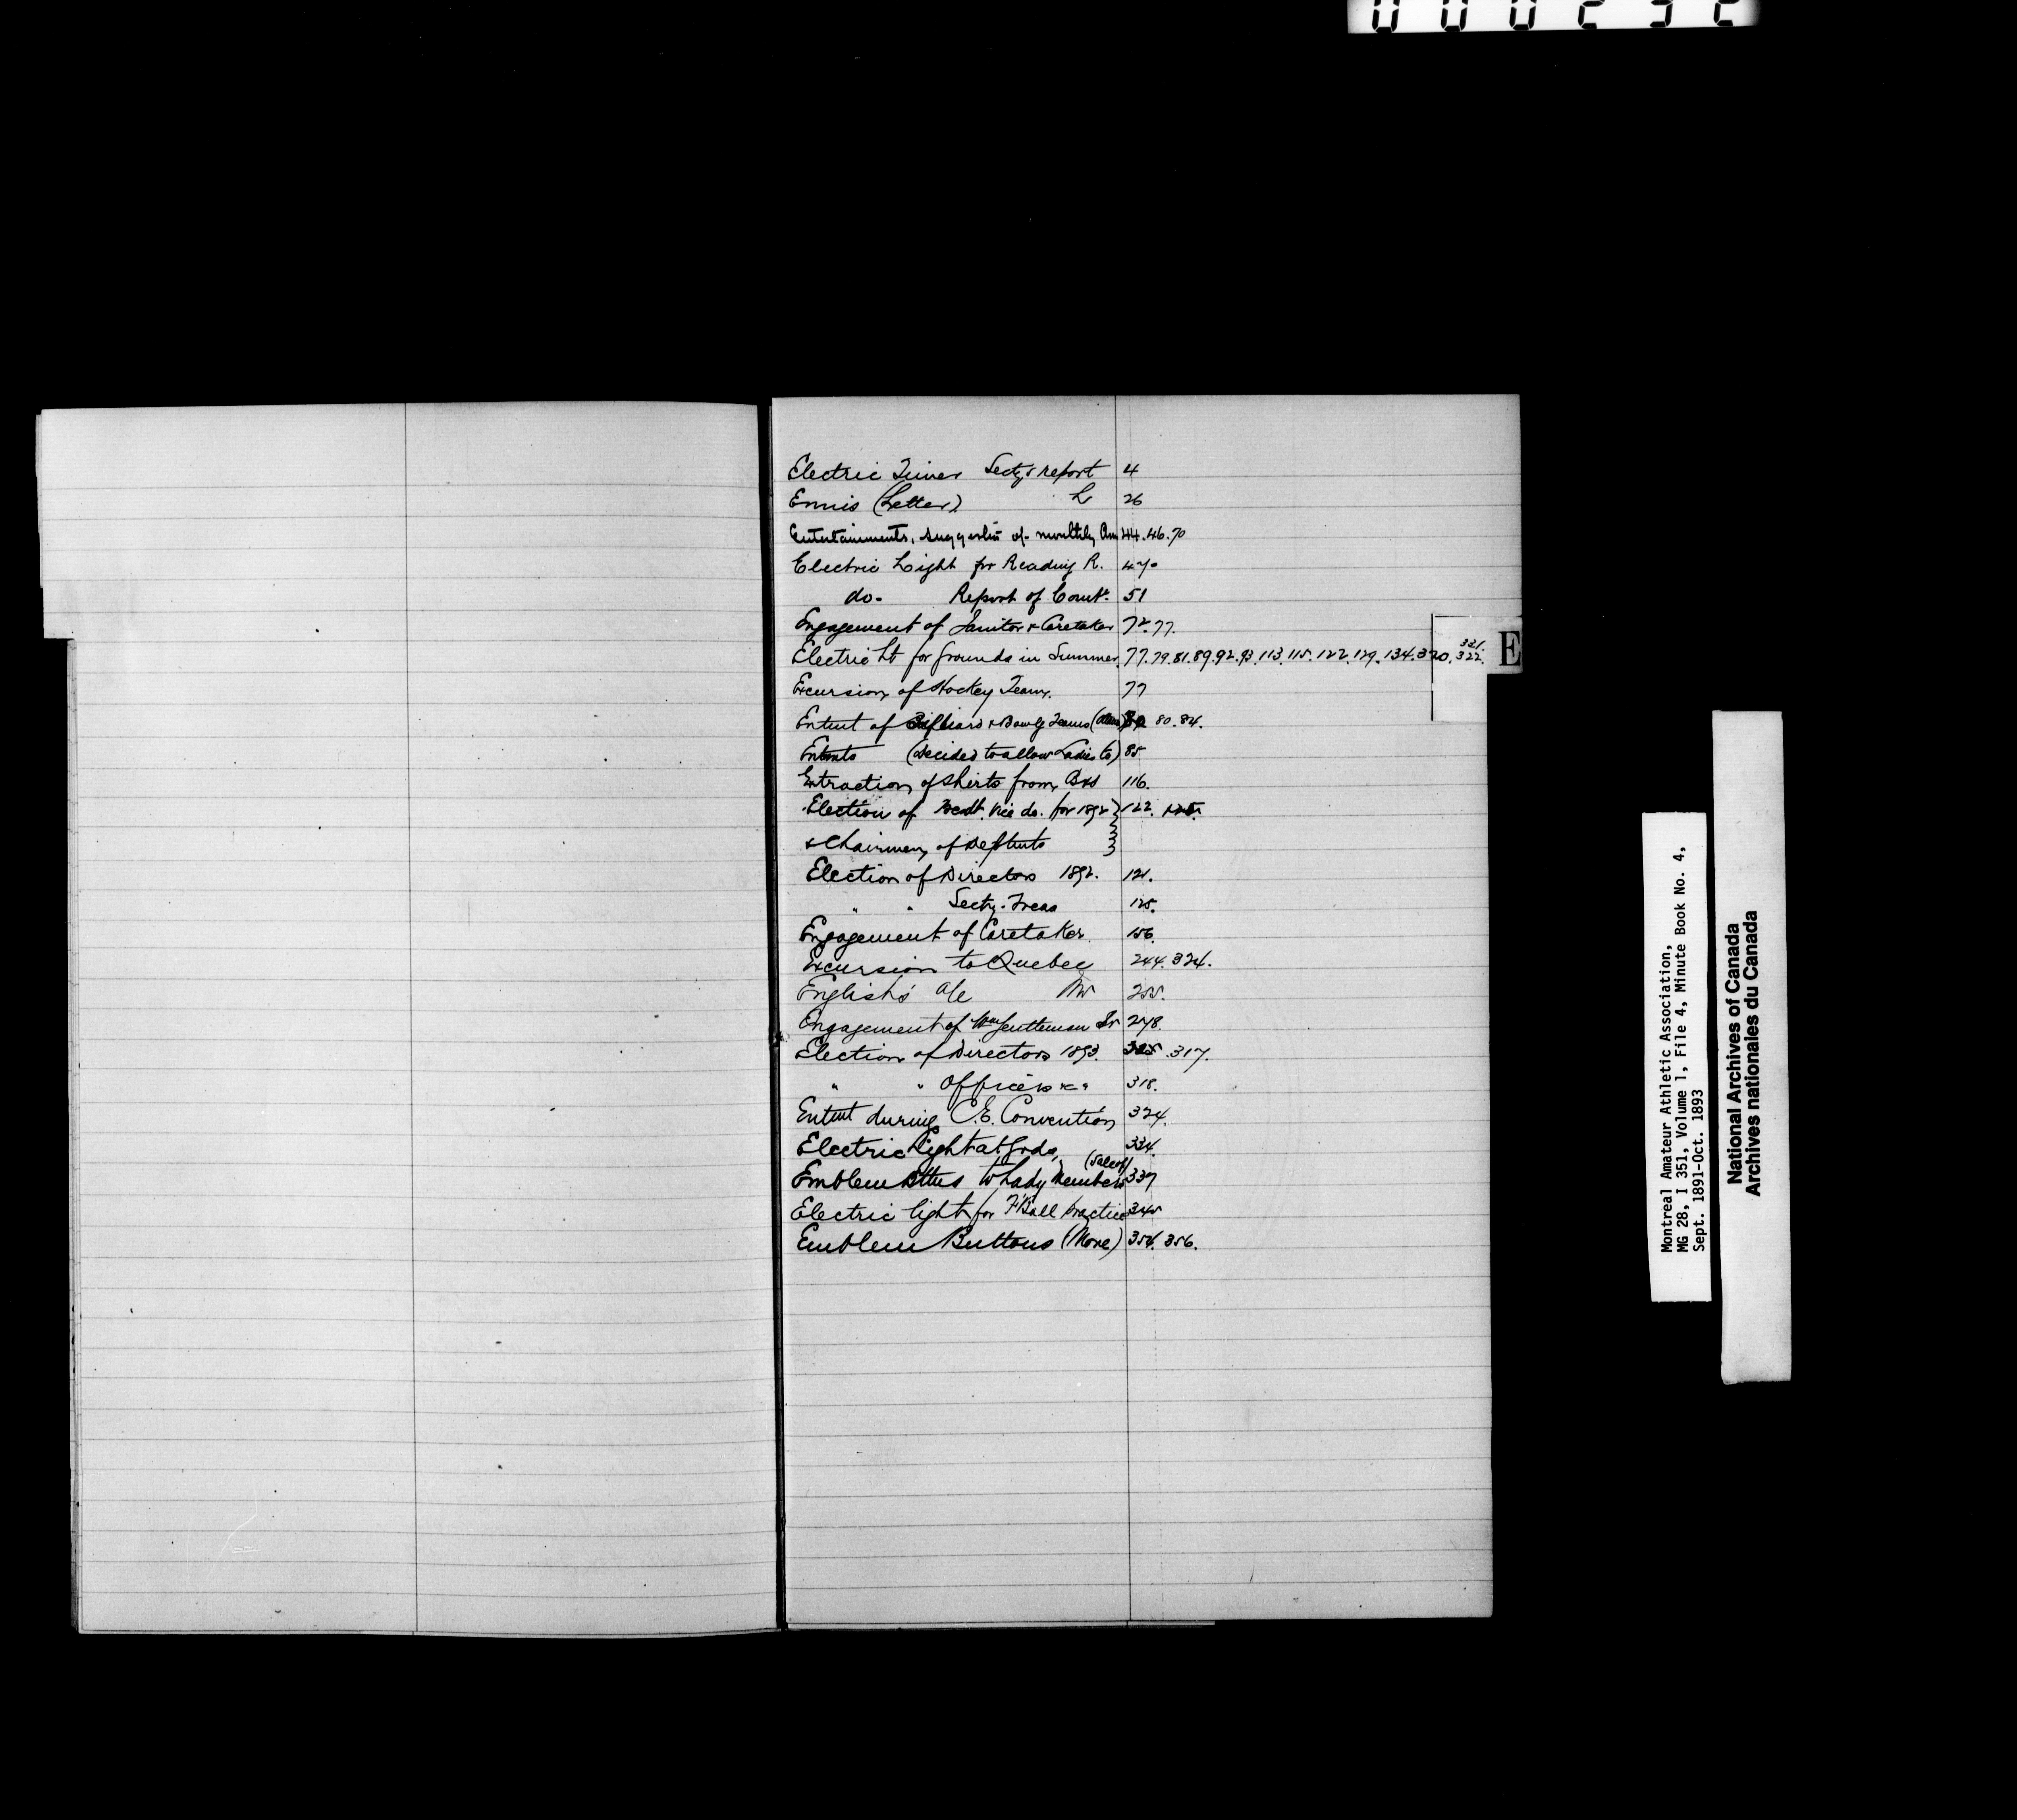 000232
Electric Timer Secty's report 4
Ennis (Letter) L 26
Entertainments, suggestn of monthly 44.46.70
Electric Light for Reading R. 47.
do. Report of Comte. 51
Engagement of Janitor & Caretaker 72.77.
Electric Lt for Grounds in Summer 77.79.81.89.92.93.113.115.122.129.134.320.321.322.
E
Excursion of Hockey Team. 77
Entmt of Billiard & Bowlg Teams 80.84.
Entmts (decided to allow Ladies to) 85
Extraction of Shirts from Box 116.
Election of Presdt. Vice do. for 1892 } 122. 125.
& Chairmen of Deptmts }
Election of Directors 1892. 121.
" " Secty. Treas 125.
Engagement of Caretaker. 156.
Excursion to Quebec 244.324.
English's a/c Mr 255.
Engagement of Wm Gentleman Sr 278.
Election of Directors 1893. 317.
" " Officers " " 318.
Entmt during C.E. Convention 324.
Electric light at Grds, 334.
Emblem Bttns to Lady Members (Sale of) 337
Electric light for F'Ball practice 345
Emblem Buttons (More) 354. 356.
Montreal Amateur Athletic Association,
MG 28, I 351, Volume 1, File 4, Minute Book No. 4,
Sept. 1891-Oct. 1893
National Archives of Canada
Archives nationales du Canada